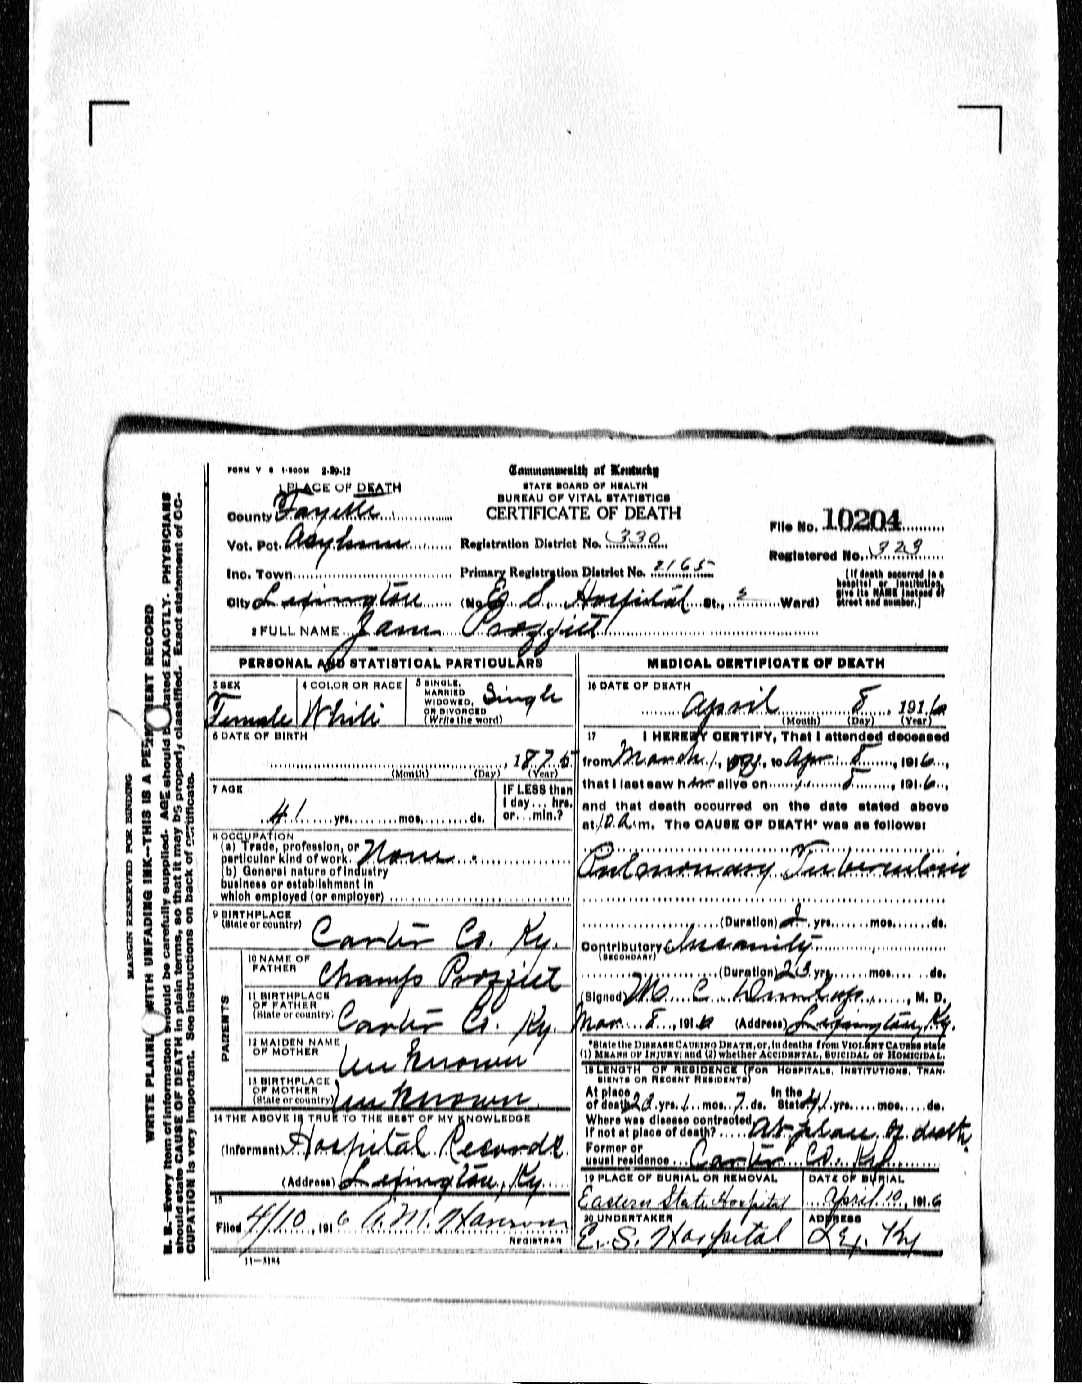 FORM V S 1-500M 2-29-12
Commonwealth of Kentucky
STATE BOARD OF HEALTH
BUREAU OF VITAL STATISTICS
CERTIFICATE OF DEATH
1 PLACE OF DEATH
County Fayette
Vot. Pct. Asylum
Inc. Town
City Lexington (No. E. S. Hospital St., Ward)
Registration District No. 330
Primary Registration District No. 2165
File No. 10204
Registered No. 323
(If death occurred in a
hospital or institution,
give its NAME instead of
street and number.)
2 FULL NAME
PERSONAL AND STATISTICAL PARTICULARS
3 SEX
Female
4 COLOR OR RACE
White
5 SINGLE,
MARRIED
WIDOWED,
OR DIVORCED
(Write the word)
Single
6 DATE OF BIRTH
1875
(Month) (Day) (Year)
7 AGE
41 yrs. mos. ds.
IF LESS than
1 day... hrs.
or...min.?
8 OCCUPATION
(a) Trade, profession, or
particular kind of work. None
(b) General nature of industry
business or establishment in
which employed (or employer)
9 BIRTHPLACE
(State or country) Carter Co. Ky.
PARENTS
10 NAME OF
FATHER Champ
11 BIRTHPLACE
OF FATHER
(State or country) Carter Co. Ky.
12 MAIDEN NAME
OF MOTHER Unknown
13 BIRTHPLACE
OF MOTHER
(State or country) Unknown
14 THE ABOVE IS TRUE TO THE BEST OF MY KNOWLEDGE
(Informant) Hospital Records
(Address) Lexington, Ky.
15
Filed 4/10, 1916 REGISTRAR
11-3184
MEDICAL CERTIFICATE OF DEATH
16 DATE OF DEATH
April 8, 1916
(Month) (Day) (Year)
17 I HEREBY CERTIFY, That I attended deceased
from March 1, to Apr. 8, 1916,
that I last saw her alive on 8, 1916,
and that death occurred on the date stated above
at 10 A.m. The CAUSE OF DEATH* was as follows:
Pulmonary Tuberculosis
(Duration) yrs. mos. ds.
Contributory Insanity
(SECONDARY)
(Duration) 23 yrs. mos. ds.
(Signed) M. C. Dunlap, M. D.
Mar. 8, 1916 (Address) Lexington, Ky.
*State the DISEASE CAUSING DEATH, or, in deaths from VIOLENT CAUSES state
(1) MEANS OF INJURY; and (2) whether ACCIDENTAL, SUICIDAL or HOMICIDAL.
18 LENGTH OF RESIDENCE (FOR HOSPITALS, INSTITUTIONS, TRAN-
SIENTS OR RECENT RESIDENTS)
At place In the
of death 23 yrs. 1 mos. 7 ds. State 41 yrs. mos. ds.
Where was disease contracted
If not at place of death? At place of death
Former or
usual residence Carter Co. Ky.
19 PLACE OF BURIAL OR REMOVAL
Eastern State Hospital
DATE OF BURIAL
April 10, 1916
20 UNDERTAKER
E. S. Hospital
ADDRESS
Lex. Ky
MARGIN RESERVED FOR BINDING
WRITE PLAINLY WITH UNFADING INK--THIS IS A PERMANENT RECORD
N. B.--Every item of information should be carefully supplied. AGE should be stated EXACTLY. PHYSICIANS
should state CAUSE OF DEATH in plain terms, so that it may be properly classified. Exact statement of OC-
CUPATION is very important. See instructions on back of certificate.